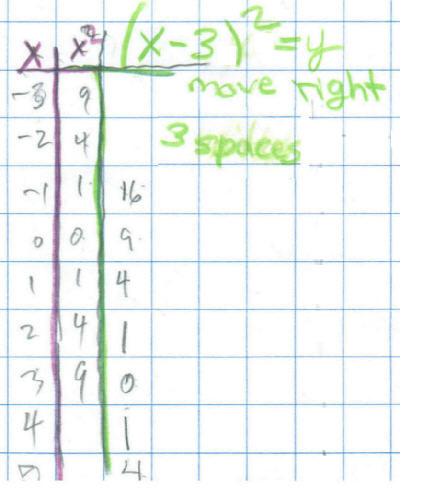 x x² (x-3)² = y
-3 9 move right
-2 4 3 spaces
-1 1 16
0 0 9
1 1 4
2 4 1
3 9 0
4 1
4